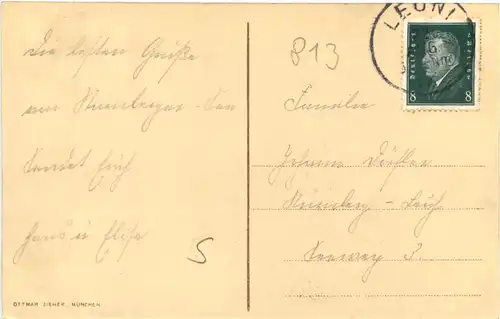 Die besten Grüße
vom Starnberger-See
sendet Euch
Hans u Elise
OTTMAR ZIEHER, MÜNCHEN
813
5
LEONI
Deutsches Reich
8 8
Familie
Nürnberg -
Seeweg 3.